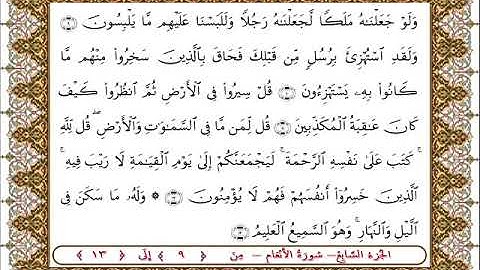 وَلَوْ جَعَلْنَـٰهُ مَلَكًا لَّجَعَلْنَـٰهُ رَجُلًا وَلَلَبَسْنَا عَلَيْهِم مَّا يَلْبِسُونَ ۝٩
وَلَقَدِ ٱسْتُهْزِئَ بِرُسُلٍ مِّن قَبْلِكَ فَحَاقَ بِٱلَّذِينَ سَخِرُوا۟ مِنْهُم مَّا
كَانُوا۟ بِهِۦ يَسْتَهْزِءُونَ ۝١٠ قُلْ سِيرُوا۟ فِى ٱلْأَرْضِ ثُمَّ ٱنظُرُوا۟ كَيْفَ
كَانَ عَـٰقِبَةُ ٱلْمُكَذِّبِينَ ۝١١ قُل لِّمَن مَّا فِى ٱلسَّمَـٰوَٰتِ وَٱلْأَرْضِ ۖ قُل لِّلَّهِ ۚ
كَتَبَ عَلَىٰ نَفْسِهِ ٱلرَّحْمَةَ ۚ لَيَجْمَعَنَّكُمْ إِلَىٰ يَوْمِ ٱلْقِيَـٰمَةِ لَا رَيْبَ فِيهِ ۚ
ٱلَّذِينَ خَسِرُوٓا۟ أَنفُسَهُمْ فَهُمْ لَا يُؤْمِنُونَ ۝١٢ ۞ وَلَهُۥ مَا سَكَنَ فِى
ٱلَّيْلِ وَٱلنَّهَارِ ۚ وَهُوَ ٱلسَّمِيعُ ٱلْعَلِيمُ ۝١٣
الجزء السابع – سورة الأنعام – مِنَ ﴿ ٩ ﴾ إلَى ﴿ ١٣ ﴾